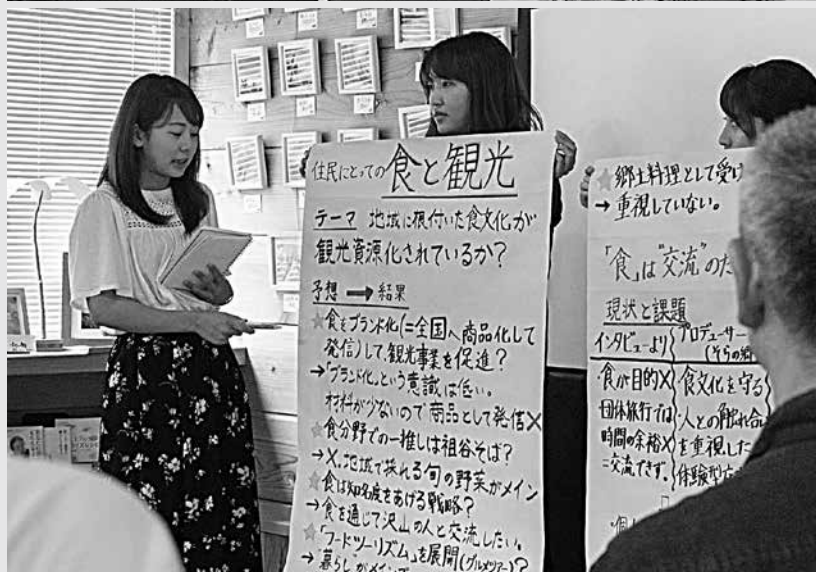 住民にとっての 食と観光
テーマ 地域に根付いた食文化が
観光資源化されているか?
予想 → 結果
☆食をブランド化(=全国へ商品化して
発信)して、観光事業を促進?
→「ブランド化」という意識は低い。
材料が少ないので商品として発信X
☆食分野での一推しは祖谷そば?
→X、地域で採れる旬の野菜がメイン
☆食は知名度をあげる戦略?
→食を通じて沢山の人と交流したい。
☆「フードツーリズム」を展開(グルメツアー)?
→暮らしがメイン
☆郷土料理として受け
→重視していない。
「食」は"交流"のた
現状と課題
インタビューより
・食が目的X
団体旅行では
時間の余裕X
=交流できず。
プロデューサー
食文化を守る
人との触れ合
を重視した
体験型